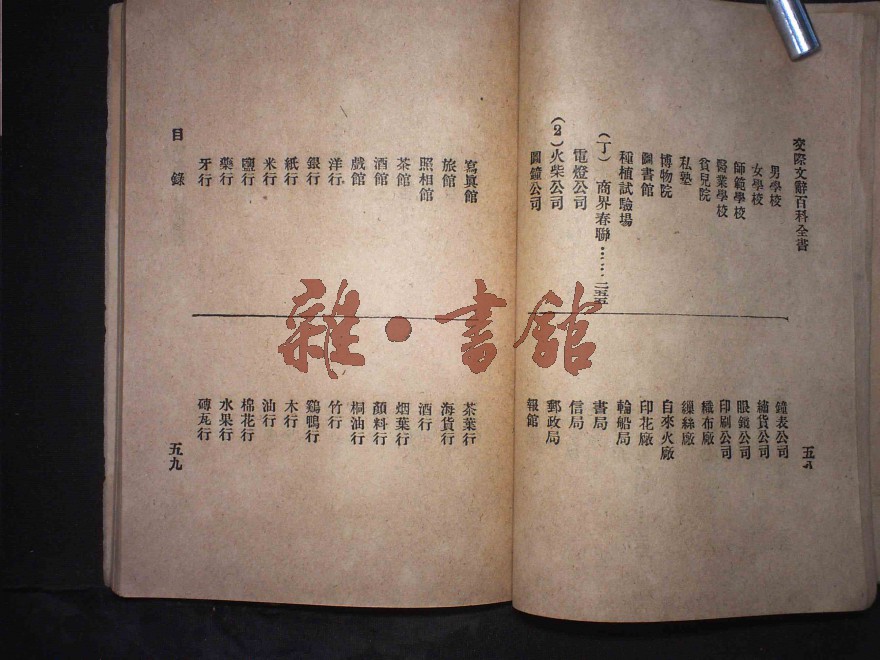 交際文辭百科全書
男學校
女學校
師範學校
醫業學校
貧兒院
私塾
博物院
圖書館
種植試驗場
(丁) 商界春聯……二五五
電燈公司
(2)火柴公司
圓鐘公司
鐘表公司
繡貨公司
眼鏡公司
印刷公司
織布廠
繅絲廠
自來火廠
印花廠
輪船局
書局
信局
郵政局
報館
五八
寫眞館
旅館
照相館
茶館
酒館
戲館
洋行
銀行
紙行
米行
鹽行
藥行
牙行
目錄
茶葉行
海貨行
酒行
烟葉行
顏料行
桐油行
竹行
鷄鴨行
木行
油行
棉花行
水果行
磚瓦行
五九
雜·書館